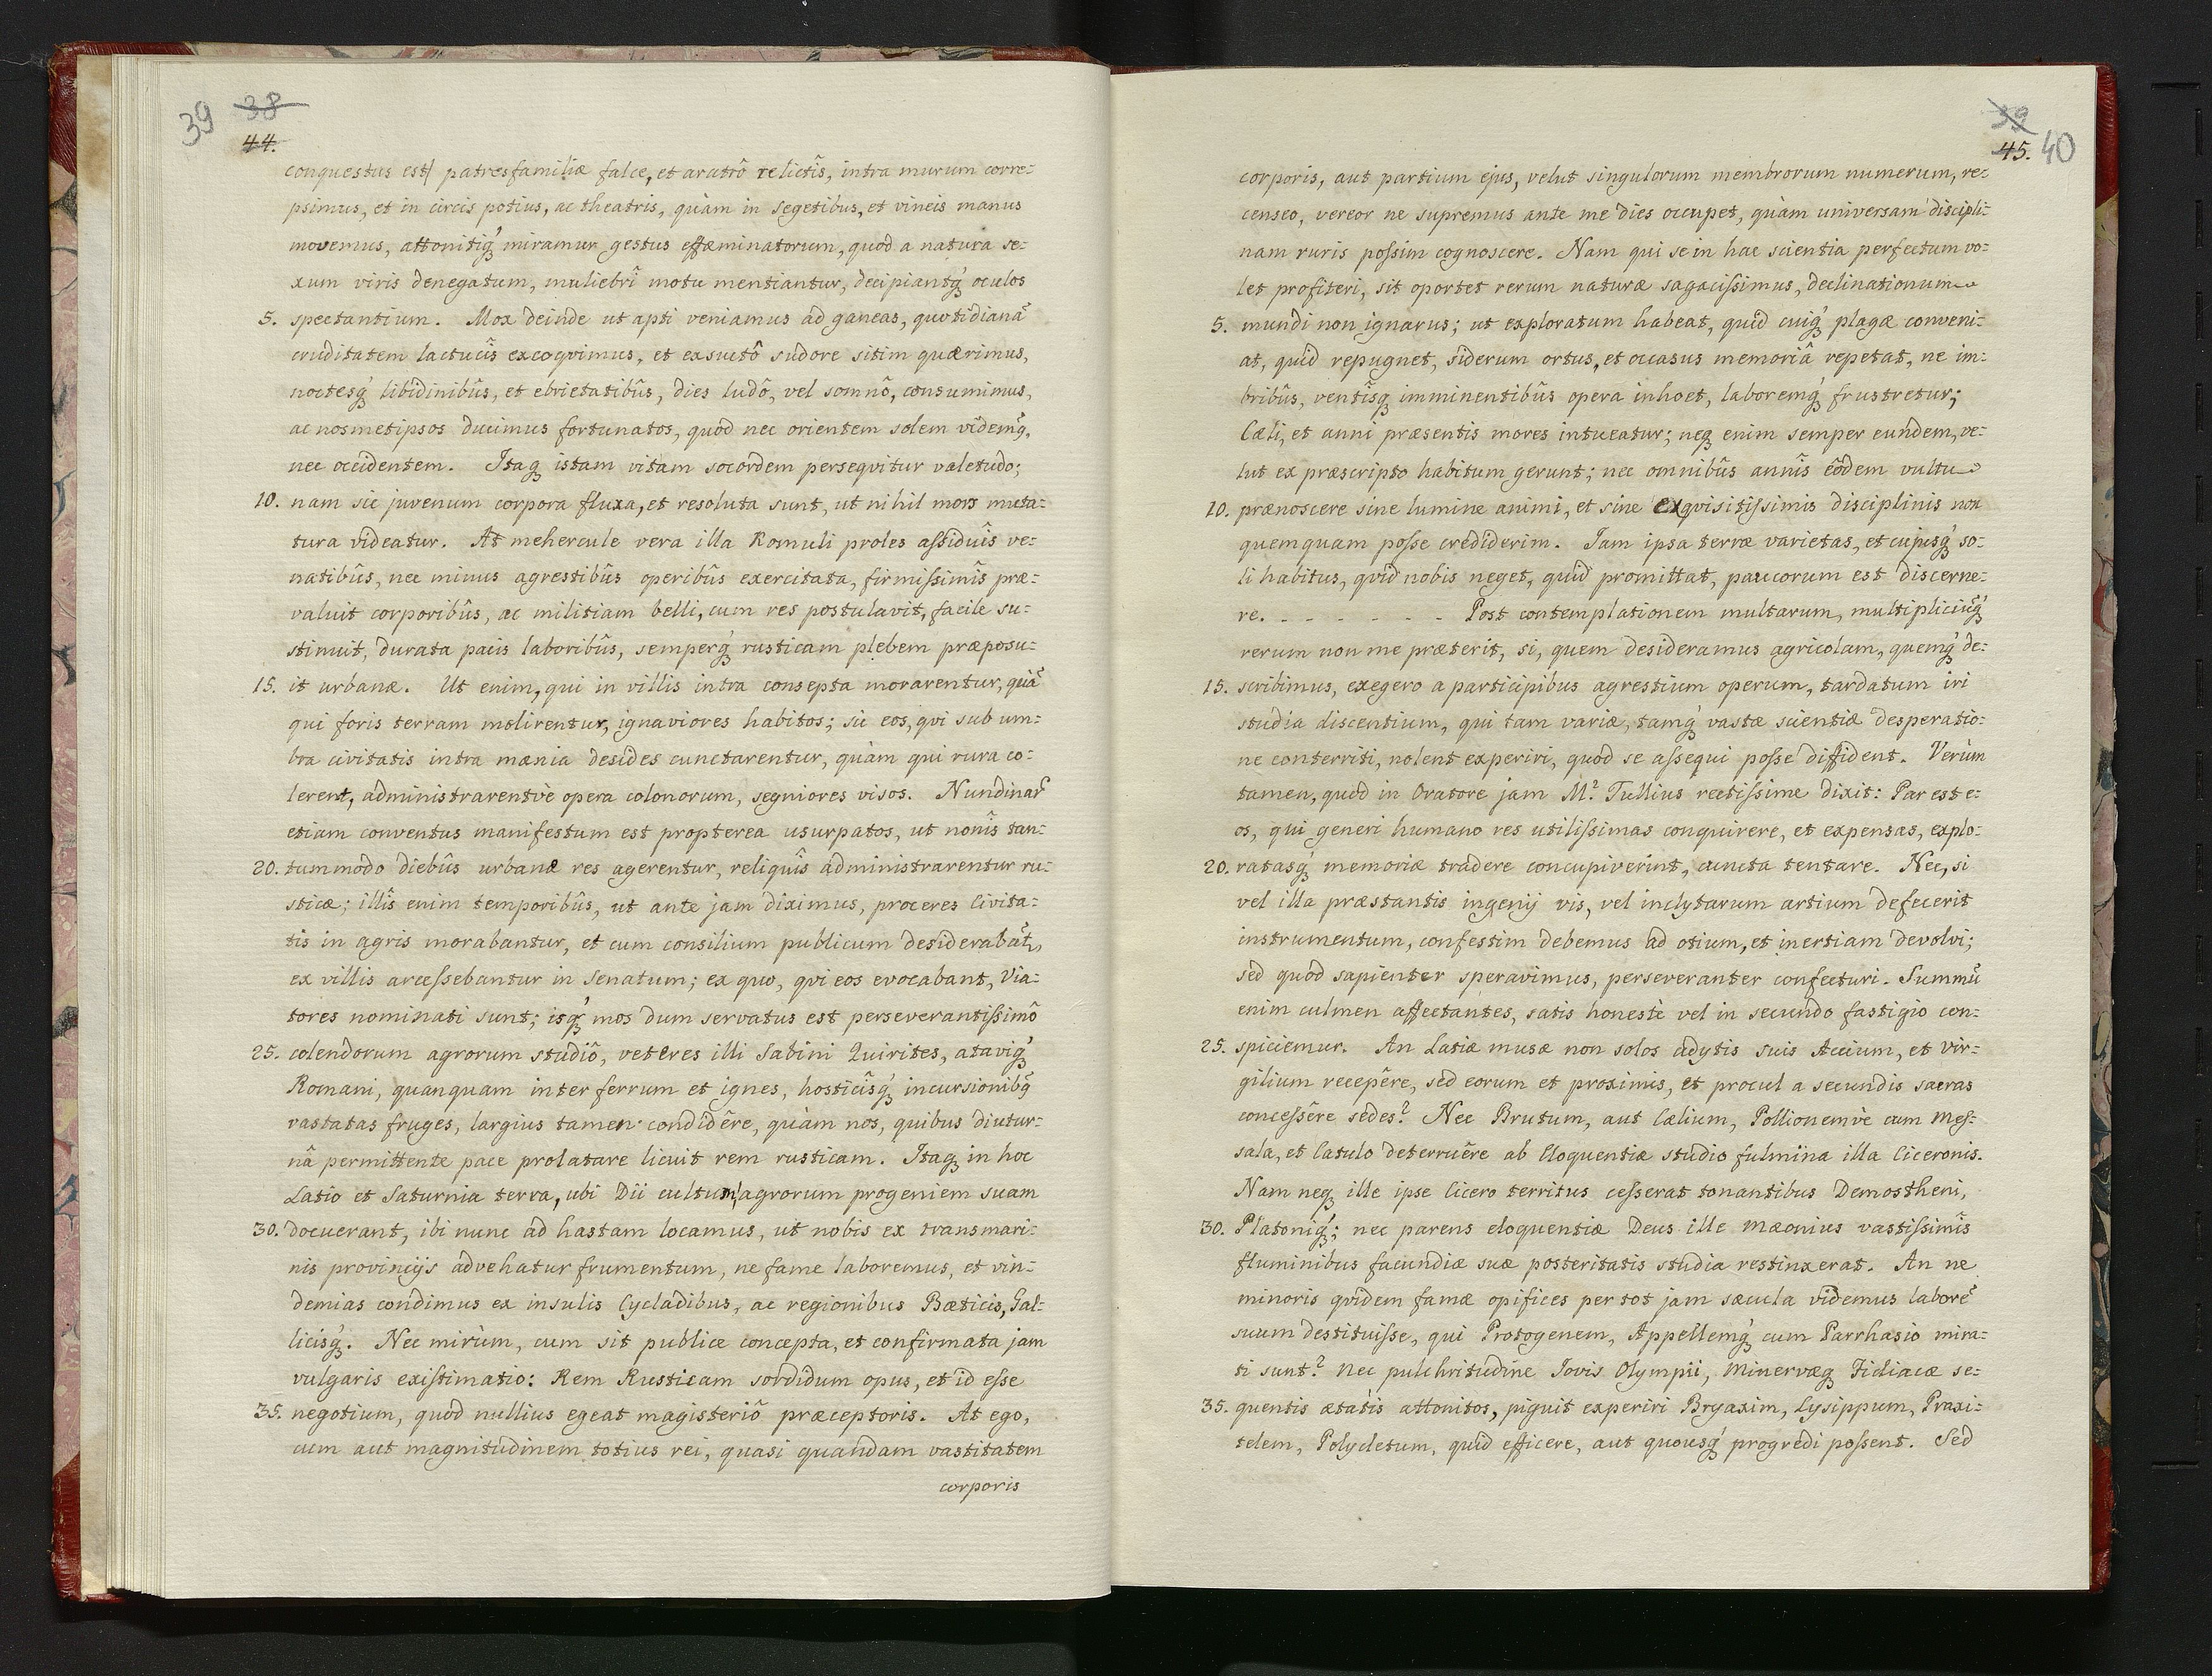 39 38
44.
conquestus est/ patresfamiliæ falce, et aratrô relictîs, intra murum corre-
psimus, et in circis potius, ac theatris, quàm in segetibus, et vineis manus
movemus, attonitiq́ꝫ miramur gestus effæminatorum, quod a natura se-
xum viris denegatum, muliebrî motu mentiantur, decipiantq́ꝫ oculos
5. spectantium. Mox deinde ut apti veniamus ad ganeas, quotidianã
cruditatem lactucîs excoqvimus, et exsuctô sudore sitim quærimus,
noctesq́ꝫ libidinibûs, et ebrietatibûs, dies ludô, vel somnô, consumimus,
ac nosmetipsos ducimus fortunatos, quod nec orientem solem videmꝰ,
nec occidentem. Itaqꝫ istam vitam socordem perseqvitur valetudo;
10. nam sic juvenum corpora fluxa, et resoluta sunt, ut nihil mors muta-
tura videatur. At mehercule vera illa Romuli proles aſsiduîs ve-
natibûs, nec minus agrestibûs operibûs exercitata, firmiſsimîs præ-
valuit corporibûs, ac militiam belli, cum res postulavit, facile su-
stinuit, durata pacis laboribûs, semperq́ꝫ rusticam plebem præposu-
15. it urbanæ. Ut enim, qui in villis intra consepta morarentur, quã
qui foris terram molirentur, ignaviores habitos; sic eos, qvi sub um-
bra civitatis intra mænia desides cunctarentur, quàm qui rura co-
lerent, administrarentvè opera colonorum, segniores visos. Nundinar̃
etiam conventus manifestum est propterea usurpatos, ut nonîs tan-
20. tummodo diebûs urbanæ res agerentur, reliquîs administrarentur ru-
sticæ; illîs enim temporibûs, ut ante jam diximus, proceres Civita-
tis in agris morabantur, et cum consilium publicum desiderabat̃,
ex villis arceſsebantur in Senatum; ex quo, qvi eos evocabant, Via-
tores nominati sunt; isq́ꝫ mos dum servatus est perseverantiſsimô
25. colendorum agrorum studiô, veteres illi Sabini Quirites, atavíqꝫ
Romani, quanquam inter ferrum et ignes, hosticîsq́ꝫ incursionibꝰ
vastatas fruges, largius tamen condidêre, quàm nos, quibus diutur-
nâ permittente pace prolatare licuit rem rusticam. Itaqꝫ in hoc
Latio et Saturnia terra, ubi Dii cultum agrorum progeniem suam
30. docuerant, ibi nunc ad hastam locamus, ut nobis ex transmari-
nis provincijs advehatur frumentum, ne fame laboremus, et vin-
demias condimus ex insulis Cycladibus, ac regionibus Bæticis, Gal-
licisq́ꝫ. Nec mirùm, cum sit publice concepta, et confirmata jam
vulgaris existimatio: Rem Rusticam sordidum opus, et id eſse
35. negotium, quod nullius egeat magisteriô præceptoris. At ego,
cum aut magnitudinem totius rei, quasi quandam vastitatem
corporis
39
45. 40
corporis, aut partium ejus, velut singulorum membrorum numerum, re-
censeo, vereor ne supremus ante me dies occupet, quàm universam discipli-
nam ruris poſsim cognoscere. Nam qui se in hac scientia perfectum vo-
let profiteri, sit oportet rerum naturæ sagaciſsimus, declinationum
5. mundi non ignarus; ut exploratum habeat, quid cuiq́ꝫ plagæ conveni-
at, quid repugnet, siderum ortus, et occasus memoriâ repetat, ne im-
bribûs, ventîsqꝫ imminentibûs opera inhoet, laboremq́ꝫ frustretur;
Cæli, et anni præsentis mores intueatur; neqꝫ enim semper eundem, ve-
lut ex præscripto habitum gerunt; nec omnibûs annîs eôdem vultu
10. prænoscere sine lumine animi, et sine exqvisitiſsimis disciplinis non
quemquam poſse crediderim. Iam ipsa terræ varietas, et cujusq́ꝫ so-
li habitus, qvid nobis neget, quid promittat, paucorum est discerne-
re. - - - - - - - Post contemplationem multarum, multipliciũq́ꝫ
rerum non me præterit, si, quem desideramus agricolam, quemq́ꝫ de-
15. scribimus, exegero a participibus agrestium operum, tardatum iri
studia discentium, qui tam variæ, tamq́ꝫ vastæ scientiæ desperatio-
ne conterriti, nolent experiri, quod se aſsequi poſse diffident. Verùm
tamen, quod in Oratore jam M. Tullius rectiſsime dixit: Par est e-
os, qui generi humano res utiliſsimas conquirere, et expensas, explo-
20. ratasq́ꝫ memoriæ tradere concupiverint, cuncta tentare. Nec, si
vel illa præstantis ingenij vis, vel inclytarum artium defecerit
instrumentum, confestim debemus ad otium, et inertiam devolvi;
sed quod sapienter speravimus, perseveranter confecturi. Summũ
enim culmen affectantes, satis honestè vel in secundo fastigio con-
25. spiciemur. An Latiæ musæ non solos adytis suis Accium, et Vir-
gilium recepêre, sed eorum et proximis, et procul a secundis sacras
conceſsêre sedes? Nec Brutum, aut Cælium, Pollionemvè cum Meſ-
sala, et Catulo deterruêre ab Eloquentiæ studio fulmina illa Ciceronis.
Nam neqꝫ ille ipse Cicero territus ceſserat tonantibus Demostheni,
30. Platoniq́ꝫ; nec parens eloquentiæ Deus ille Mæonius vastiſsimîs
fluminibus facundiæ suæ posteritatis studia restinxerat. An ne
minoris qvidem famæ opifices per tot jam sæcula videmus laborẽ
suum destituiſse, qui Protogenem, Appellemq́ꝫ cum Parrhasio mira-
ti sunt? Nec pulchritudine Iovis Olympii, Minervæqꝫ Fidiacæ se-
35. quentis ætatis attonitos, piguit experiri Bryaxim, Lysippum, Praxi-
telem, Polycletum, quid efficere, aut quousq́ꝫ progredi poſsent. Sed